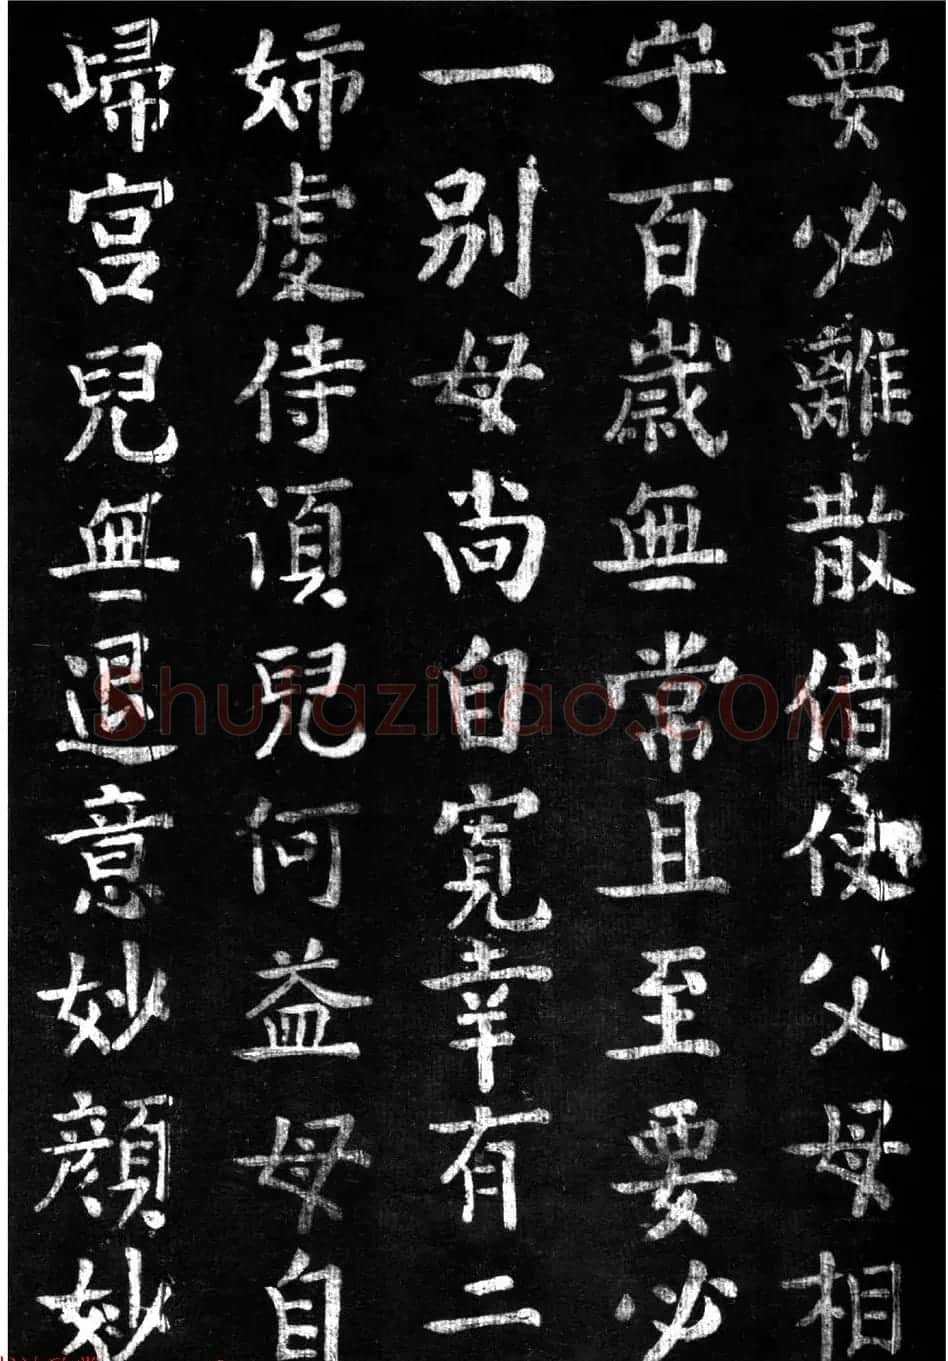 要必離散借使父母相
守百歲無常且至要必
一别母尚自寬幸有二
姉虔侍湏兒何益母自
歸宮兒無退意妙顔妙
Shufaziliao.COM